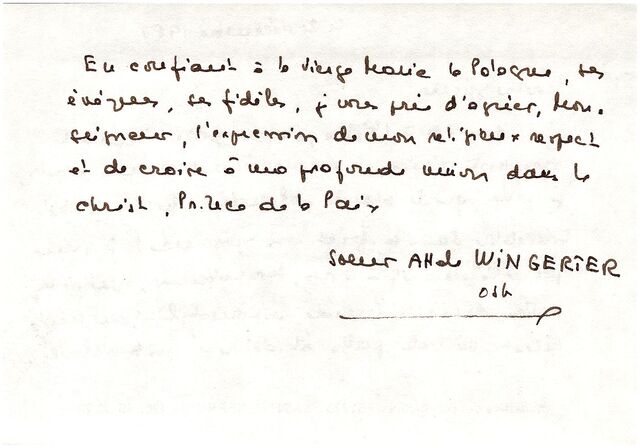 En confiant à la Vierge Marie la Pologne, ses
évêques, ses fidèles, je vous prie d'agréer, Mon-
seigneur, l'expression de mon religieux respect
et de croire à ma profonde union dans le
Christ, Prince de la Paix
Soeur WINGERTER
osb